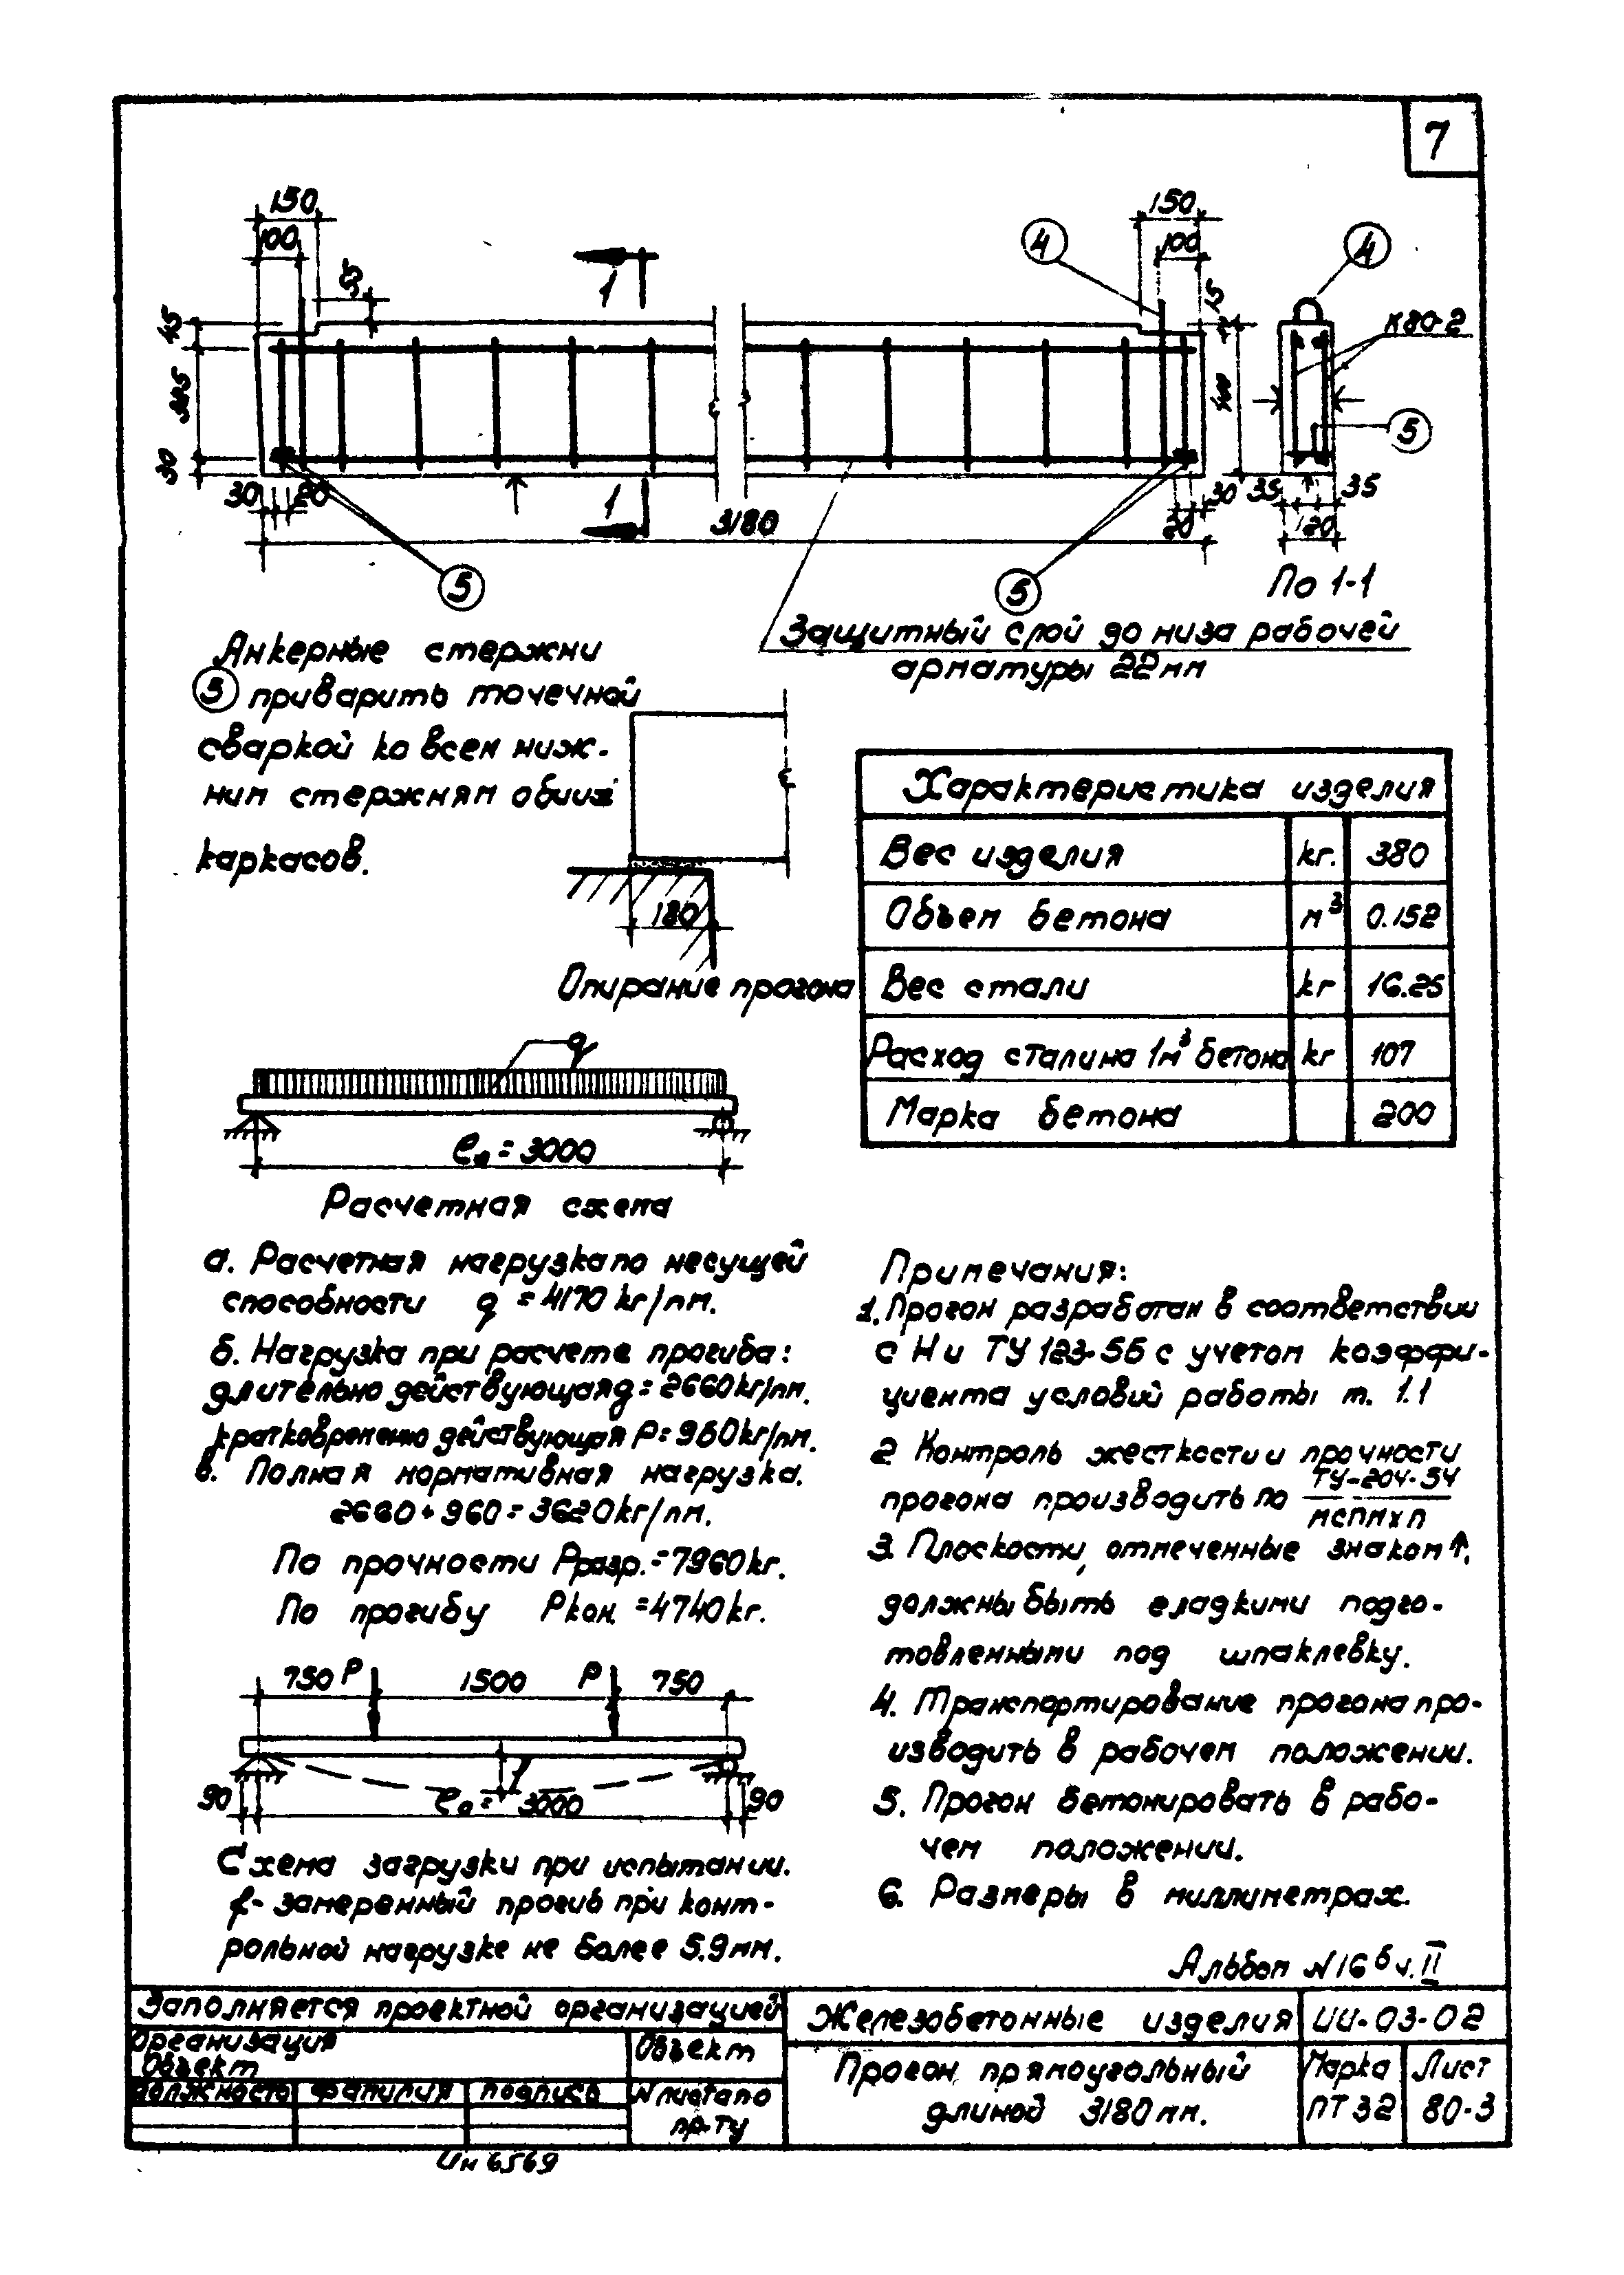 7
150
100
150
100
4
4
1
К80-2
5
30
20
1
3180
20
30
35
35
120
5
5
По 1-1
Защитный слой до низа рабочей
арматуры 22мм
Анкерные стержни
5 приварить точечной
сваркой ко всем ниж-
ним стержням обоих
каркасов.
180
Опирание прогона
Характеристика изделия
Вес изделия кг. 380
Объем бетона м³ 0.152
Вес стали кг 16.25
Расход стали на 1м³ бетона кг 107
Марка бетона 200
q
= 3000
Расчетная схема
а. Расчетная нагрузка по несущей
способности q = 4170 кг/пм.
б. Нагрузка при расчете прогиба:
длительно действующая g = 2660 кг/пм.
кратковременно действующая P = 960 кг/пм.
в. Полная нормативная нагрузка.
2660 + 960 = 3620 кг/пм.
По прочности Pразр. = 7960 кг.
По прогибу Pкон. = 4740 кг.
750 P 1500 P 750
90 = 3000 90
Схема загрузки при испытании.
f- замеренный прогиб при конт-
рольной нагрузке не более 5.9 мм.
Примечания:
1. Прогон разработан в соответствии
с Н и ТУ 123-55 с учетом коэффи-
циента условий работы m. 1.1
2 Контроль жесткости и прочности
прогона производить по ТУ-204-54
МСПМХП
3. Плоскости, отмеченные знаком ↑,
должны быть гладкими подго-
товленными под шпаклевку.
4. Транспортирование прогона про-
изводить в рабочем положении.
5. Прогон бетонировать в рабо-
чем положении.
6. Размеры в миллиметрах.
Альбом N 16 б ч. II
Заполняется проектной организацией
Организация
Объект
Объект
должность фамилия подпись
N листа по
пр-ту
Железобетонные изделия ИИ-03-02
Прогон прямоугольный
длиной 3180 мм.
Марка
ПТ 32
Лист
80-3
Ин 6569